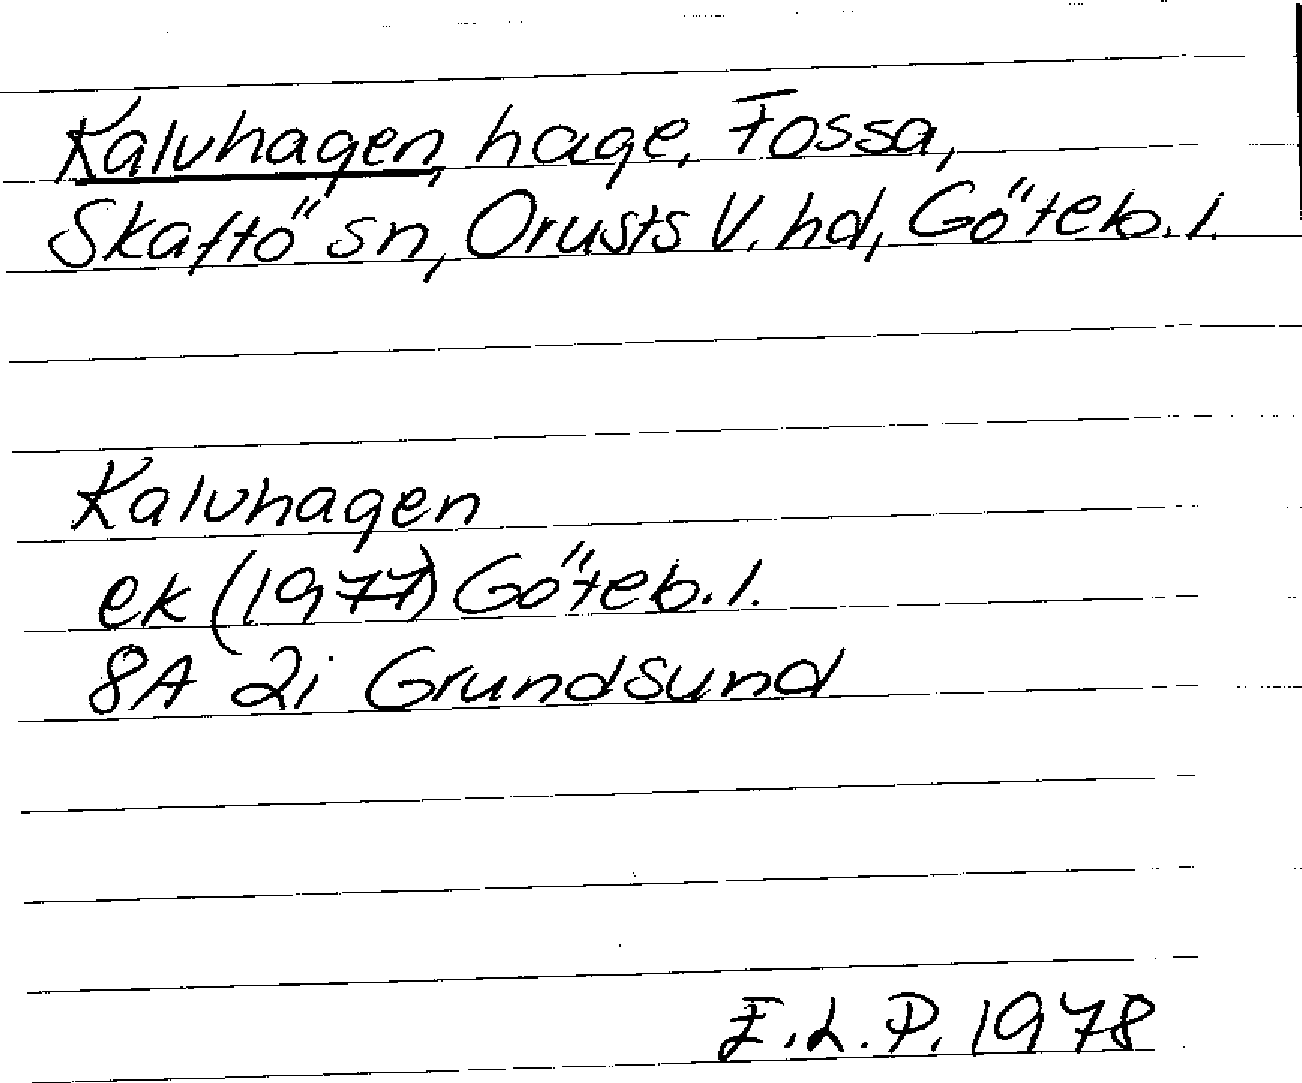 Kalvhagen, hage, Fossa,
Skaftö sn, Orusts V. hd, Göteb. l.
Kalvhagen
ek (1977) Göteb. l.
8A 2i Grundsund
E. L. P. 1978